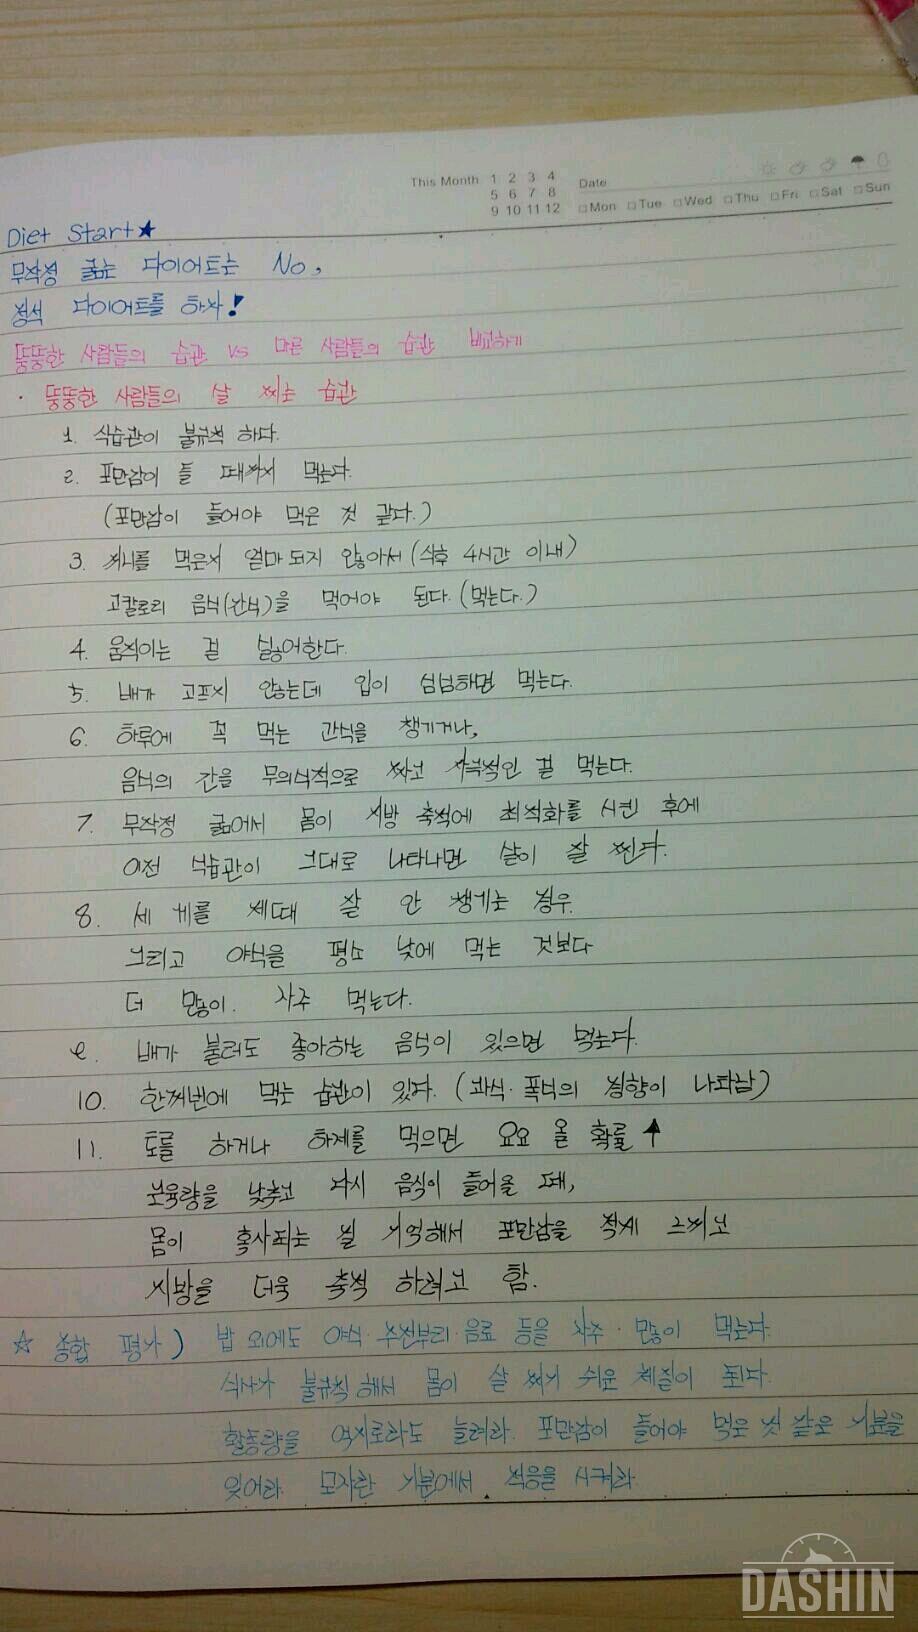 This Month 1 2 3 4
5 6 7 8
9 10 11 12
Date
□Mon □Tue □Wed □Thu □Fri □Sat □Sun
Diet Start★
무작정 굶는 다이어트는 No,
정석 다이어트를 하자!
뚱뚱한 사람들의 습관 VS 마른 사람들의 습관 비교하기
· 뚱뚱한 사람들의 살 찌는 습관
1. 식습관이 불규칙 하다.
2. 포만감이 들 때까지 먹는다.
(포만감이 들어야 먹은 것 같다.)
3. 끼니를 먹은지 얼마 되지 않아서 (식후 4시간 이내)
고칼로리 음식(간식)을 먹어야 된다. (먹는다.)
4. 움직이는 걸 싫어한다.
5. 배가 고프지 않는데 입이 심심하면 먹는다.
6. 하루에 꼭 먹는 간식을 챙기거나,
음식의 간을 무의식적으로 짜고 자극적인 걸 먹는다.
7. 무작정 굶어서 몸이 지방 축적에 최적화를 시킨 후에
이전 식습관이 그대로 나타나면 살이 잘 찐다.
8. 세 끼를 제때 잘 안 챙기는 경우.
그리고 야식을 평소 낮에 먹는 것보다
더 많이. 자주 먹는다.
9. 배가 불러도 좋아하는 음식이 있으면 먹는다.
10. 한꺼번에 먹는 습관이 있다. (과식·폭식의 경향이 나타남)
11. 토를 하거나 하제를 먹으면 요요 올 확률↑
보육량을 낮추고 다시 음식이 들어올 때,
몸이 혹사되는 걸 기억해서 포만감을 적게 느끼고
지방을 더욱 축적 하려고 함.
☆ 종합 평가) 밥 외에도 야식·주전부리·음료 등을 자주·많이 먹는다.
식사가 불규칙해서 몸이 살 찌기 쉬운 체질이 된다.
활동량을 억지로라도 늘려라. 포만감이 들어야 먹은 것 같은 기분을
잊어라. 모자란 기분에서 적응을 시켜라.
DASHIN